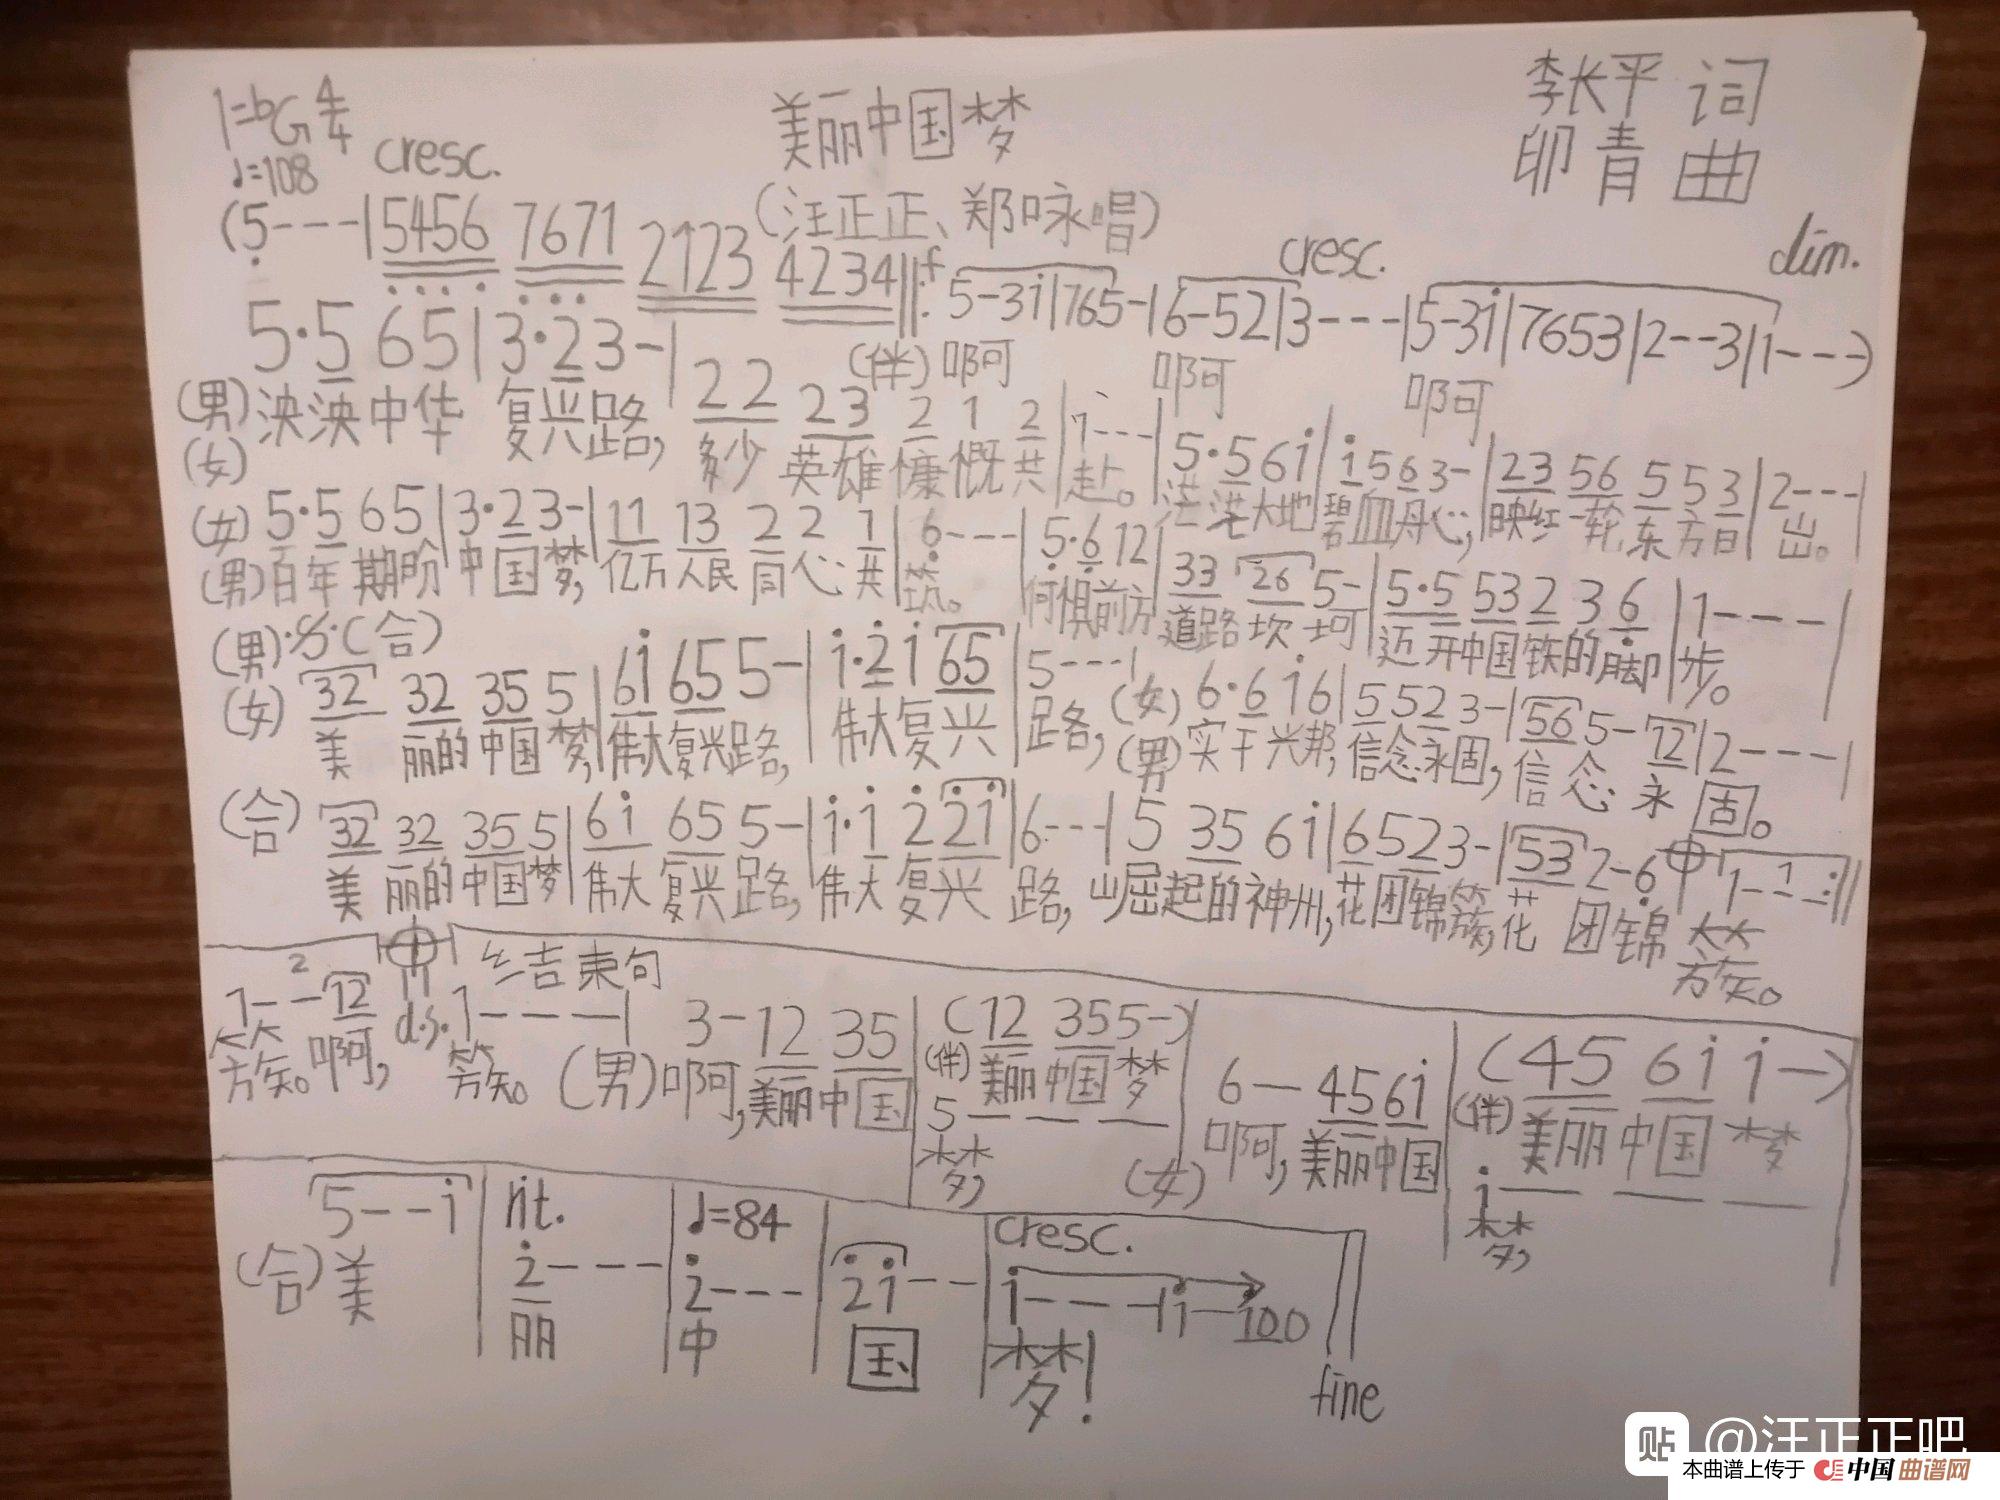 1=bG 4/4
美丽中国梦
李长平 词
♩=108
cresc.
(汪正正、郑咏唱)
卯青 曲
(5---|5456 7671 2123 4234‖: f 5-3i|765-|6-52|3---|5-3i|7653|2--3|1---)
cresc.
dim.
(伴) 啊 啊 啊
5·5 65|3·23-|22 23 2 1 2|1---|5·5 6i|i563-|23 56 5 5 3|2---|
(男) 泱泱中华 复兴路, 多少 英雄 慷慨共赴。 茫茫大地碧血丹心, 映红一轮东方日出。
(女)
(女) 5·5 65|3·23-|11 13 2 2 1|6---|5·6 12|33 26 5-|5·5 53 2 3 6|1---|
(男) 百年期盼中国梦, 亿万人民同心共筑。 何惧前方道路坎坷 迈开中国铁的脚步。
(男) 𝄋 (合)
(女) 32 32 35 5|6i 65 5-|i·2 i 65|5---|(女) 6·6 i6|5 52 3-|56 5-12|2---|
美 丽的中国梦, 伟大复兴路, 伟大复兴 路, (男) 实干兴邦, 信念永固, 信念永固。
(合) 32 32 35 5|6i 65 5-|i·i 2 2i|6---|5 35 6i|6523-|53 2-6|1---:‖
美 丽的中国梦 伟大复兴路, 伟大复兴 路, 崛起的神州, 花团锦簇, 花团锦簇。
结束句
1--12 d.s. 1---| 3-12 35|(12 355-)|6-456i|(45 6i i-)
簇。啊, 簇。 (男) 啊, 美丽中国 (伴) 美丽中国梦 啊, 美丽中国 (伴) 美丽中国梦
5--- i---
梦, (女) 梦,
5--i|rit. 2---|♩=84 2---|2i--|cresc. i---|i-100‖
(合) 美 丽 中 国 梦!
fine
贴 @汪正正吧
本曲谱上传于 中国曲谱网